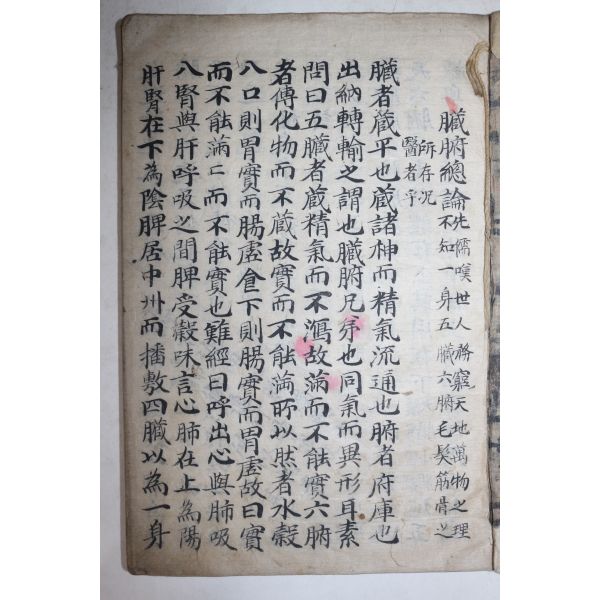 臟腑總論 先儒嘆世人務窮天地萬物之理
不知一身五臟六腑毛髮筋骨之
所存况
醫者乎
臟者藏平也藏諸神而精氣流通也腑者府庫也
出納轉輸之謂也臟腑兄弟也同氣而異形耳素
問曰五臟者藏精氣而不瀉故滿而不能實六腑
者傳化物而不藏故實而不能滿所以然者水穀
入口則胃實而腸虛食下則腸實而胃虛故曰實
而不能滿〻而不能實也難經曰呼出心與肺吸
入腎與肝呼吸之間脾受穀味言心肺在上為陽
肝腎在下為陰脾居中州而播敷四臟以為一身